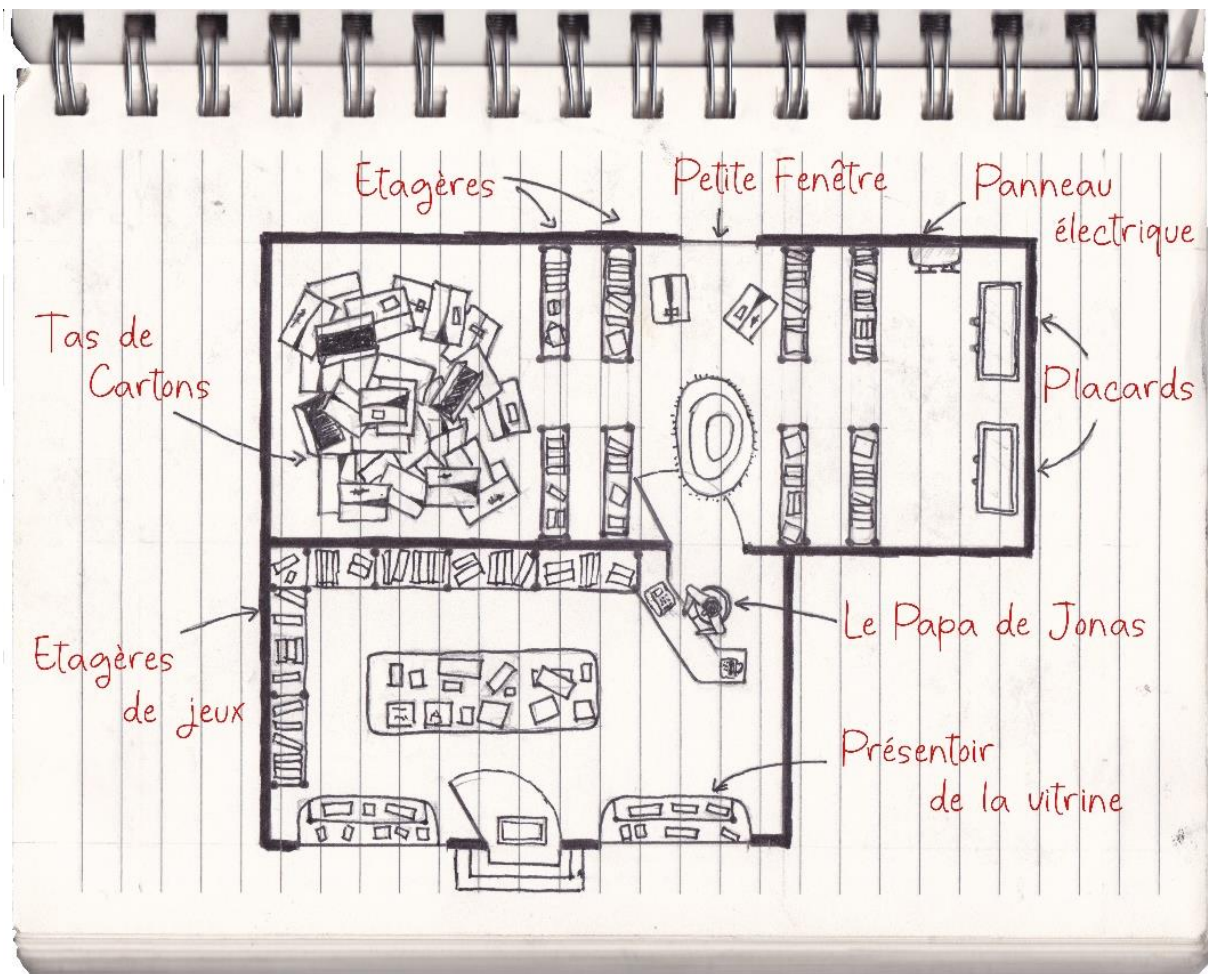 Etagères
Petite Fenêtre
Panneau
électrique
Tas de
Cartons
Placards
Le Papa de Jonas
Etagères
de jeux
Présentoir
de la vitrine